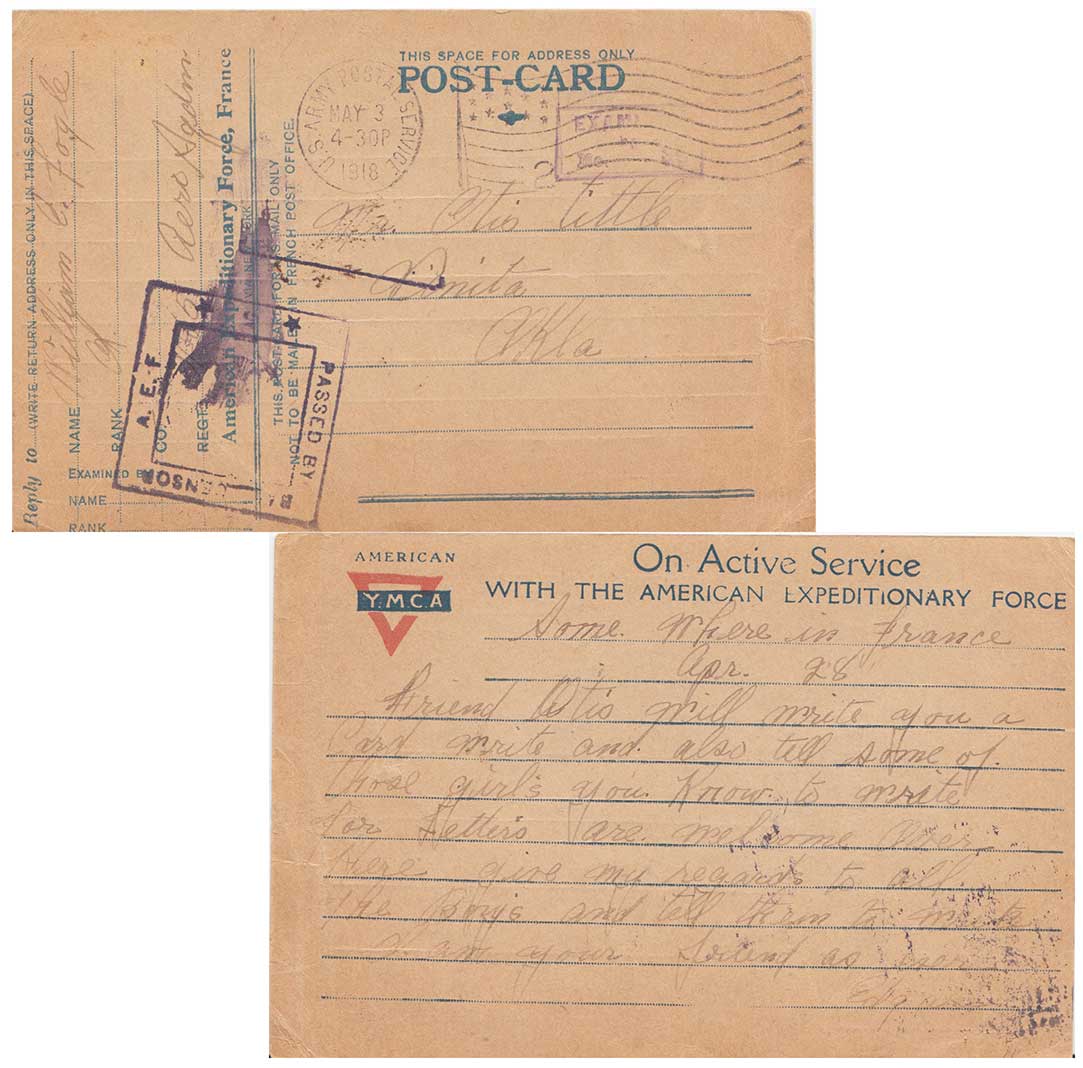 THIS SPACE FOR ADDRESS ONLY
POST-CARD
U.S. ARMY POSTAL SERVICE
MAY 3
4-30P
1918
Mr. Otis Little
Vinita
Okla
Reply to (WRITE RETURN ADDRESS ONLY IN THIS SPACE)
NAME William E. Fogle
RANK
CO.
REGT. Aero Sqdrn
American Expeditionary Force, France
THIS POST CARD FOR U.S. MAIL ONLY
NOT TO BE MAILED IN FRENCH POST OFFICE.
EXAMINED BY
NAME
RANK
A.E.F.
PASSED BY
CENSOR
AMERICAN
Y.M.C.A
On Active Service
WITH THE AMERICAN EXPEDITIONARY FORCE
Some Where in France
Apr. 28
Friend Otis will write you a
Card write and also tell some of
those girl's you Know to write
For Letters are welcome over
Here give my regards to all
the Boys and tell them to write
I am your Friend as ever